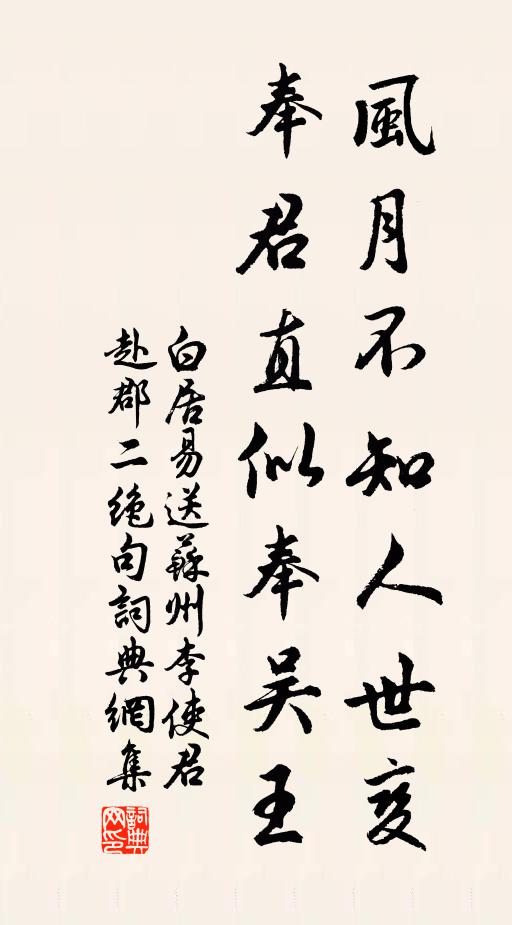 風月不知人世变
奉君直似奉吴王
白居易送蘇州李使君
赴郡二绝句詞典網集
詞典网印